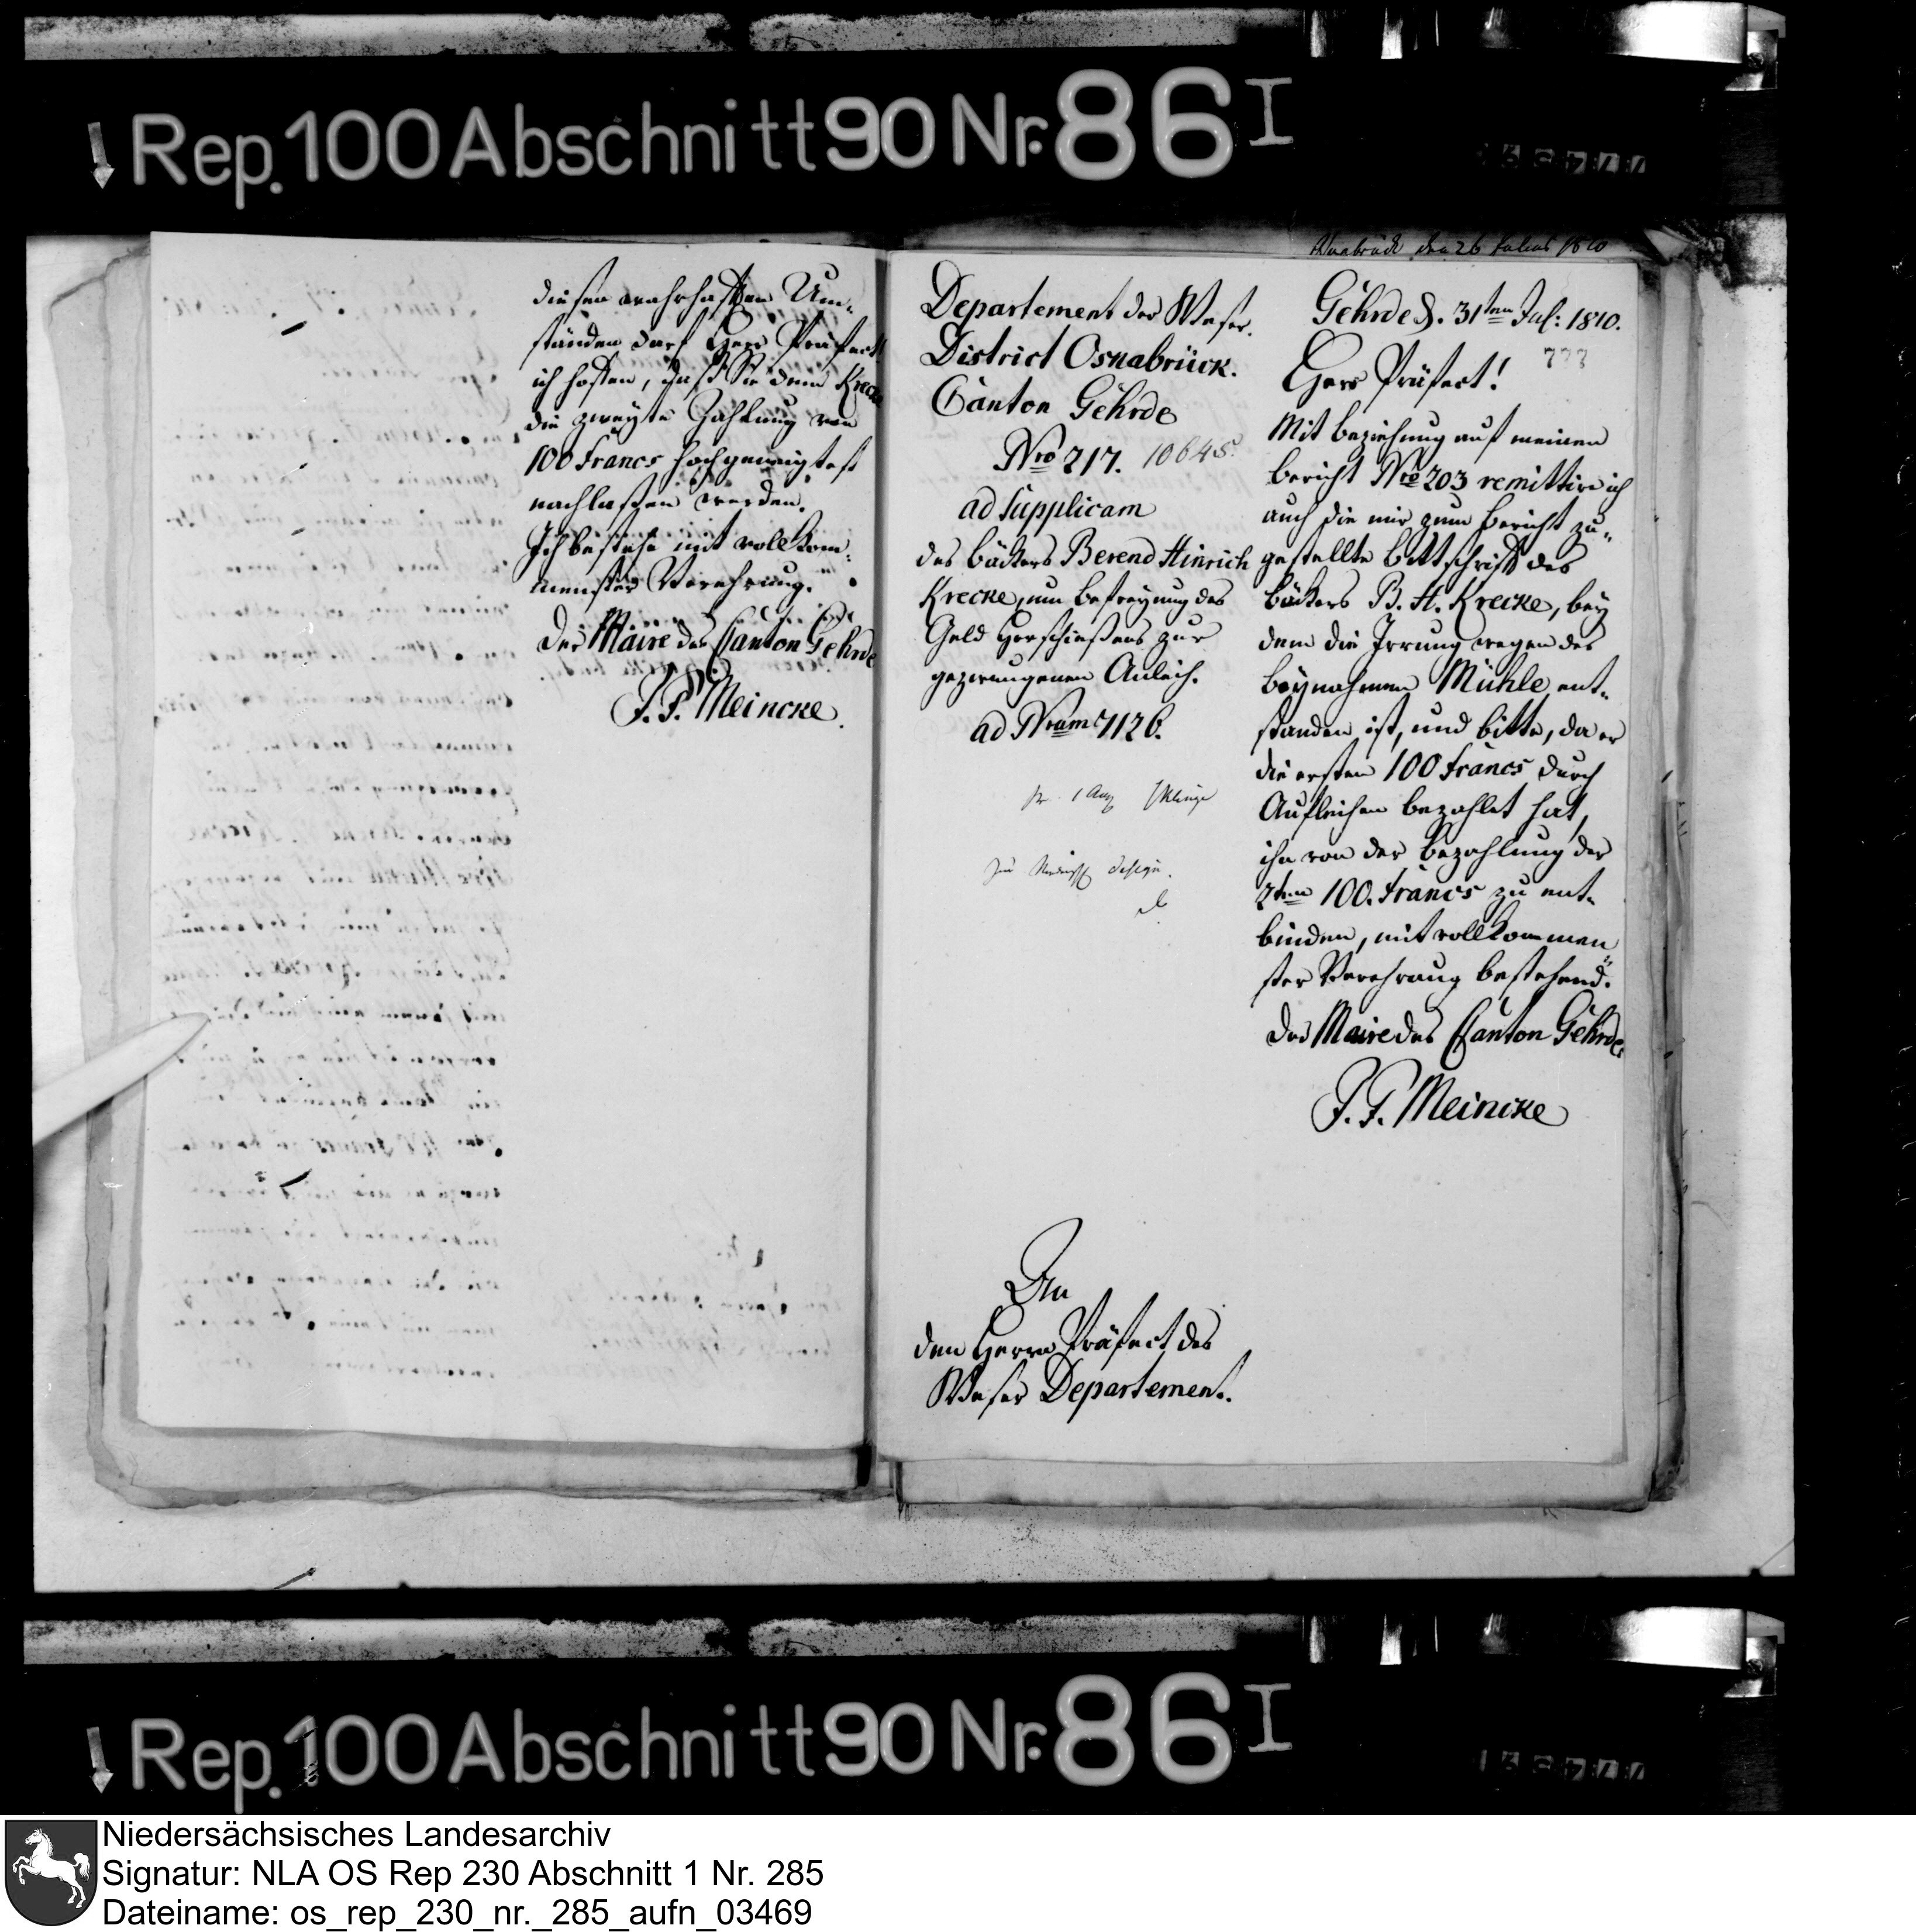 Rep. 100 Abschnitt 90 Nr. 86 I
diesen wahrhaften Um-
ständen darf Herr Präfect
ich hoffen, daß Sie dem Krecke
die zweyte Zahlung von
100 Francs hochgeneigtest
nachlaßen werden.
Ich bestehe mit vollkom-
menster Verehrung.
Der Maire des Canton Gehrde
Meincke
Osnabrück den 26 Julius 1810
Departement der Weser.
District Osnabrück.
Canton Gehrde
Nro 217. 10645.
ad Supplicam
des Bäckers Berend Hinrich
Krecke, um Befreyung des
Geld Herschießens zur
gezwungenen Anleih.
ad Nrum 7126.
1 Aug
An
den Herrn Präfect des
Weser Departement.
Gehrde d. 31ten Jul: 1810.
Herr Präfect!
Mit Beziehung auf meinen
Bericht Nro 203 remittire ich
auch die mir zum Bericht zu-
gestellte Bittschrift des
Bäckers B. H. Krecke, bey
dem die Irrung wegen des
Beynahmen Mühle ent-
standen ist, und bitte, da er
die ersten 100 Francs durch
Aufleihen bezahlet hat,
ihn von der Bezahlung der
2ten 100. Francs zu ent-
binden, mit vollkommen
ster Verehrung bestehend.
Der Maire des Canton Gehrde
Meincke
Rep. 100 Abschnitt 90 Nr. 86 I
Niedersächsisches Landesarchiv
Signatur: NLA OS Rep 230 Abschnitt 1 Nr. 285
Dateiname: os_rep_230_nr._285_aufn_03469